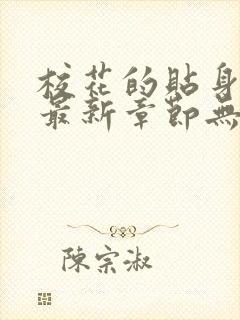 校花的貼身
最新章節無
陳宗淑